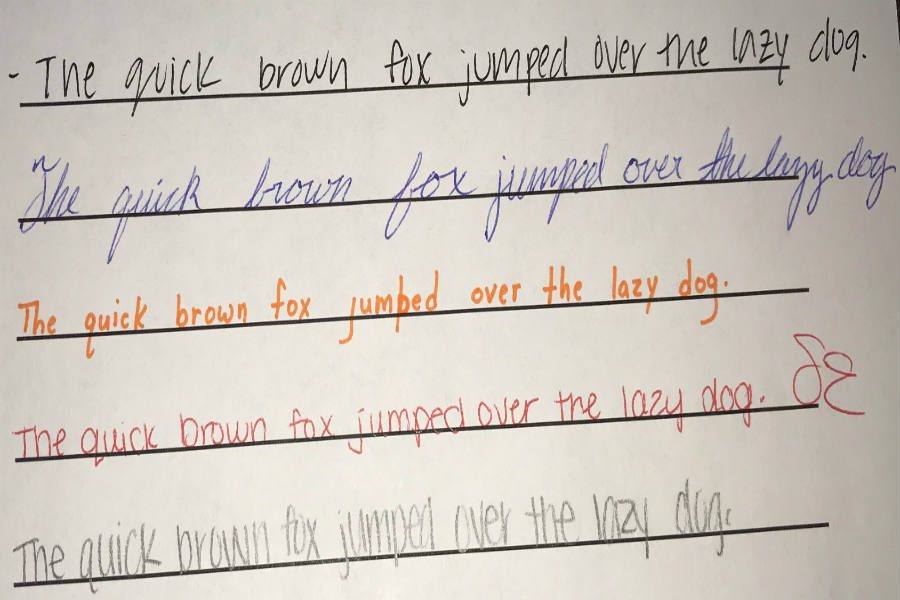 - The quick brown fox jumped over the lazy dog.
The quick brown fox jumped over the lazy dog
The quick brown fox jumped over the lazy dog.
The quick brown fox jumped over the lazy dog.
The quick brown fox jumped over the lazy dog.